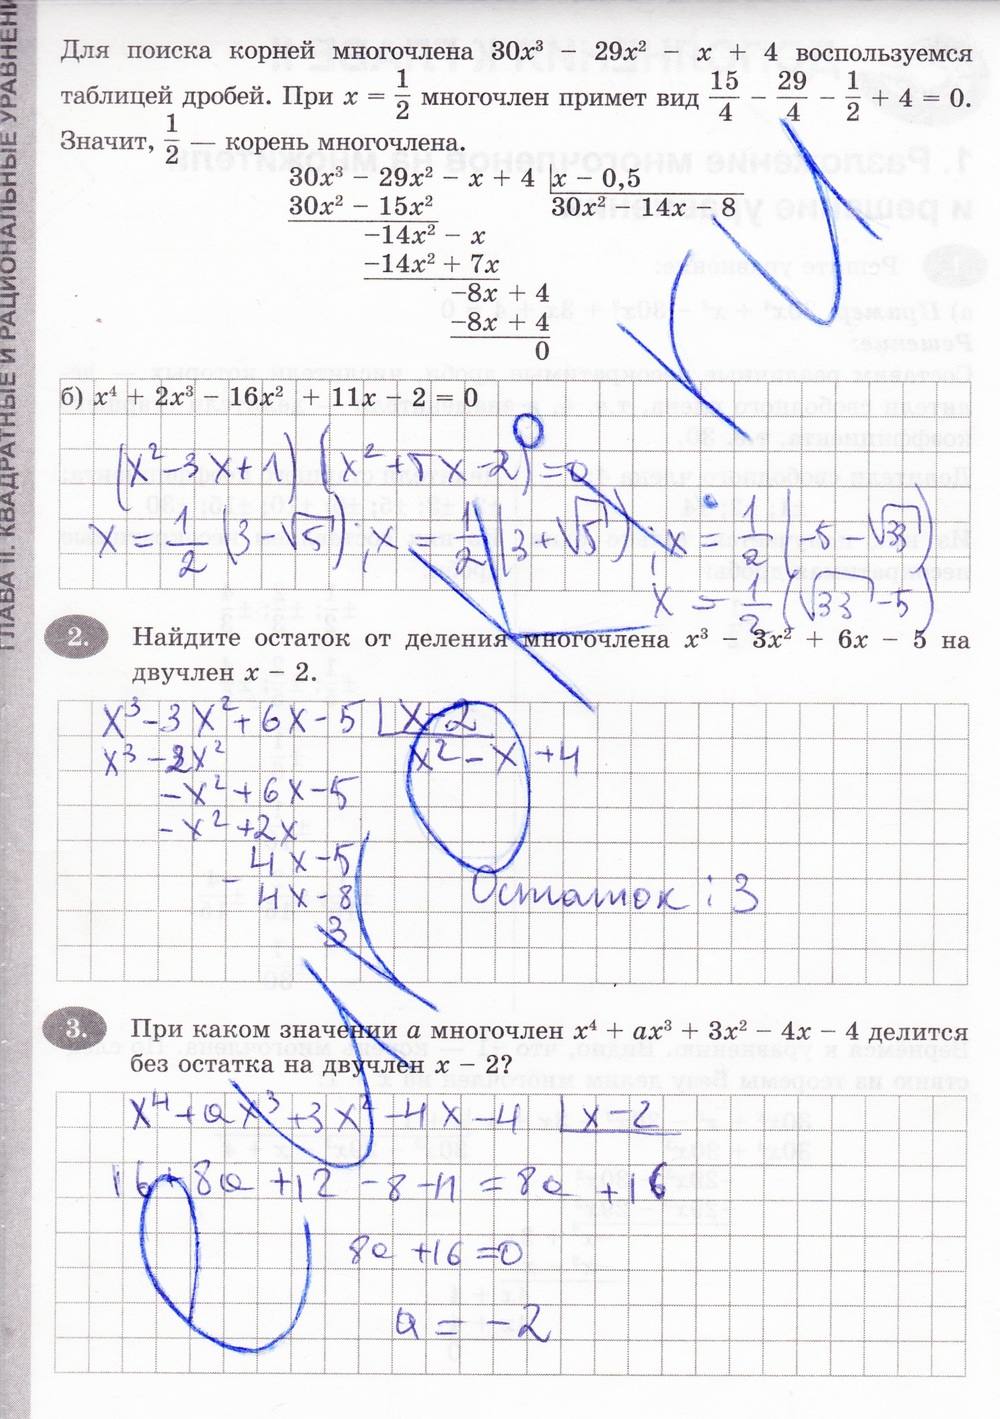 ГЛАВА II. КВАДРАТНЫЕ И РАЦИОНАЛЬНЫЕ УРАВНЕНИ
Для поиска корней многочлена 30x³ − 29x² − x + 4 воспользуемся
таблицей дробей. При x = 1/2 многочлен примет вид 15/4 − 29/4 − 1/2 + 4 = 0.
Значит, 1/2 — корень многочлена.
30x³ − 29x² − x + 4 | x − 0,5
30x² − 15x² 30x² − 14x − 8
−14x² − x
−14x² + 7x
−8x + 4
−8x + 4
0
б) x⁴ + 2x³ − 16x² + 11x − 2 = 0
(x² − 3x + 1) (x² + 5x − 2) = 0
x = 1/2 (3 − √5); x = 1/2 (3 + √5); x = 1/2 (−5 − √33)
x = 1/2 (√33 − 5)
2. Найдите остаток от деления многочлена x³ − 3x² + 6x − 5 на
двучлен x − 2.
x³ − 3x² + 6x − 5 | x − 2
x³ − 2x² x² − x + 4
−x² + 6x − 5
−x² + 2x
4x − 5
− 4x − 8
3
Остаток: 3
3. При каком значении a многочлен x⁴ + ax³ + 3x² − 4x − 4 делится
без остатка на двучлен x − 2?
x⁴ + ax³ + 3x² − 4x − 4 | x − 2
16 + 8a + 12 − 8 − 4 = 8a + 16
8a + 16 = 0
a = −2